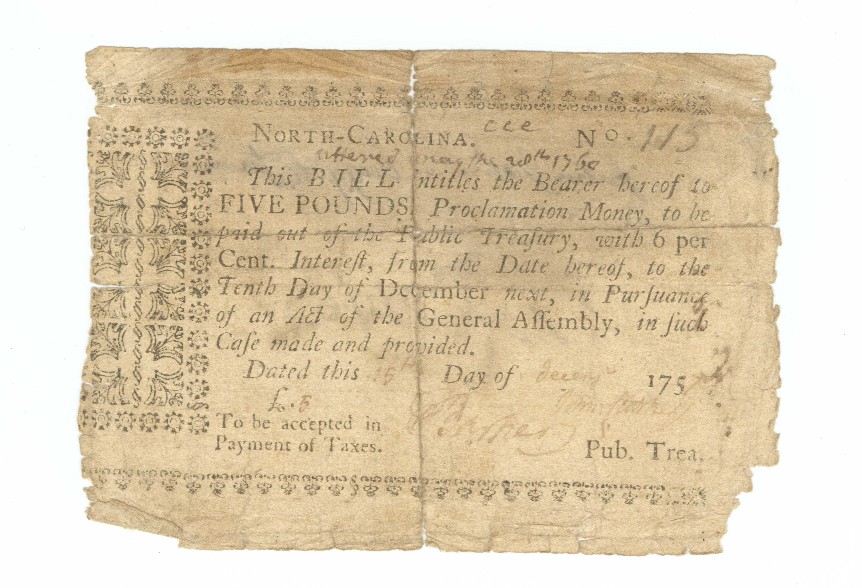 NORTH-CAROLINA. ccc No. 115
may the 20th 1760
This BILL intitles the Bearer hereof to
FIVE POUNDS, Proclamation Money, to be
paid out of the Public Treasury, with 6 per
Cent. Intereſt, from the Date hereof, to the
Tenth Day of December next, in Purſuance
of an Act of the General Aſſembly, in ſuch
Caſe made and provided.
Dated this Day of 175
£. 5
To be accepted in
Payment of Taxes. Pub. Trea.